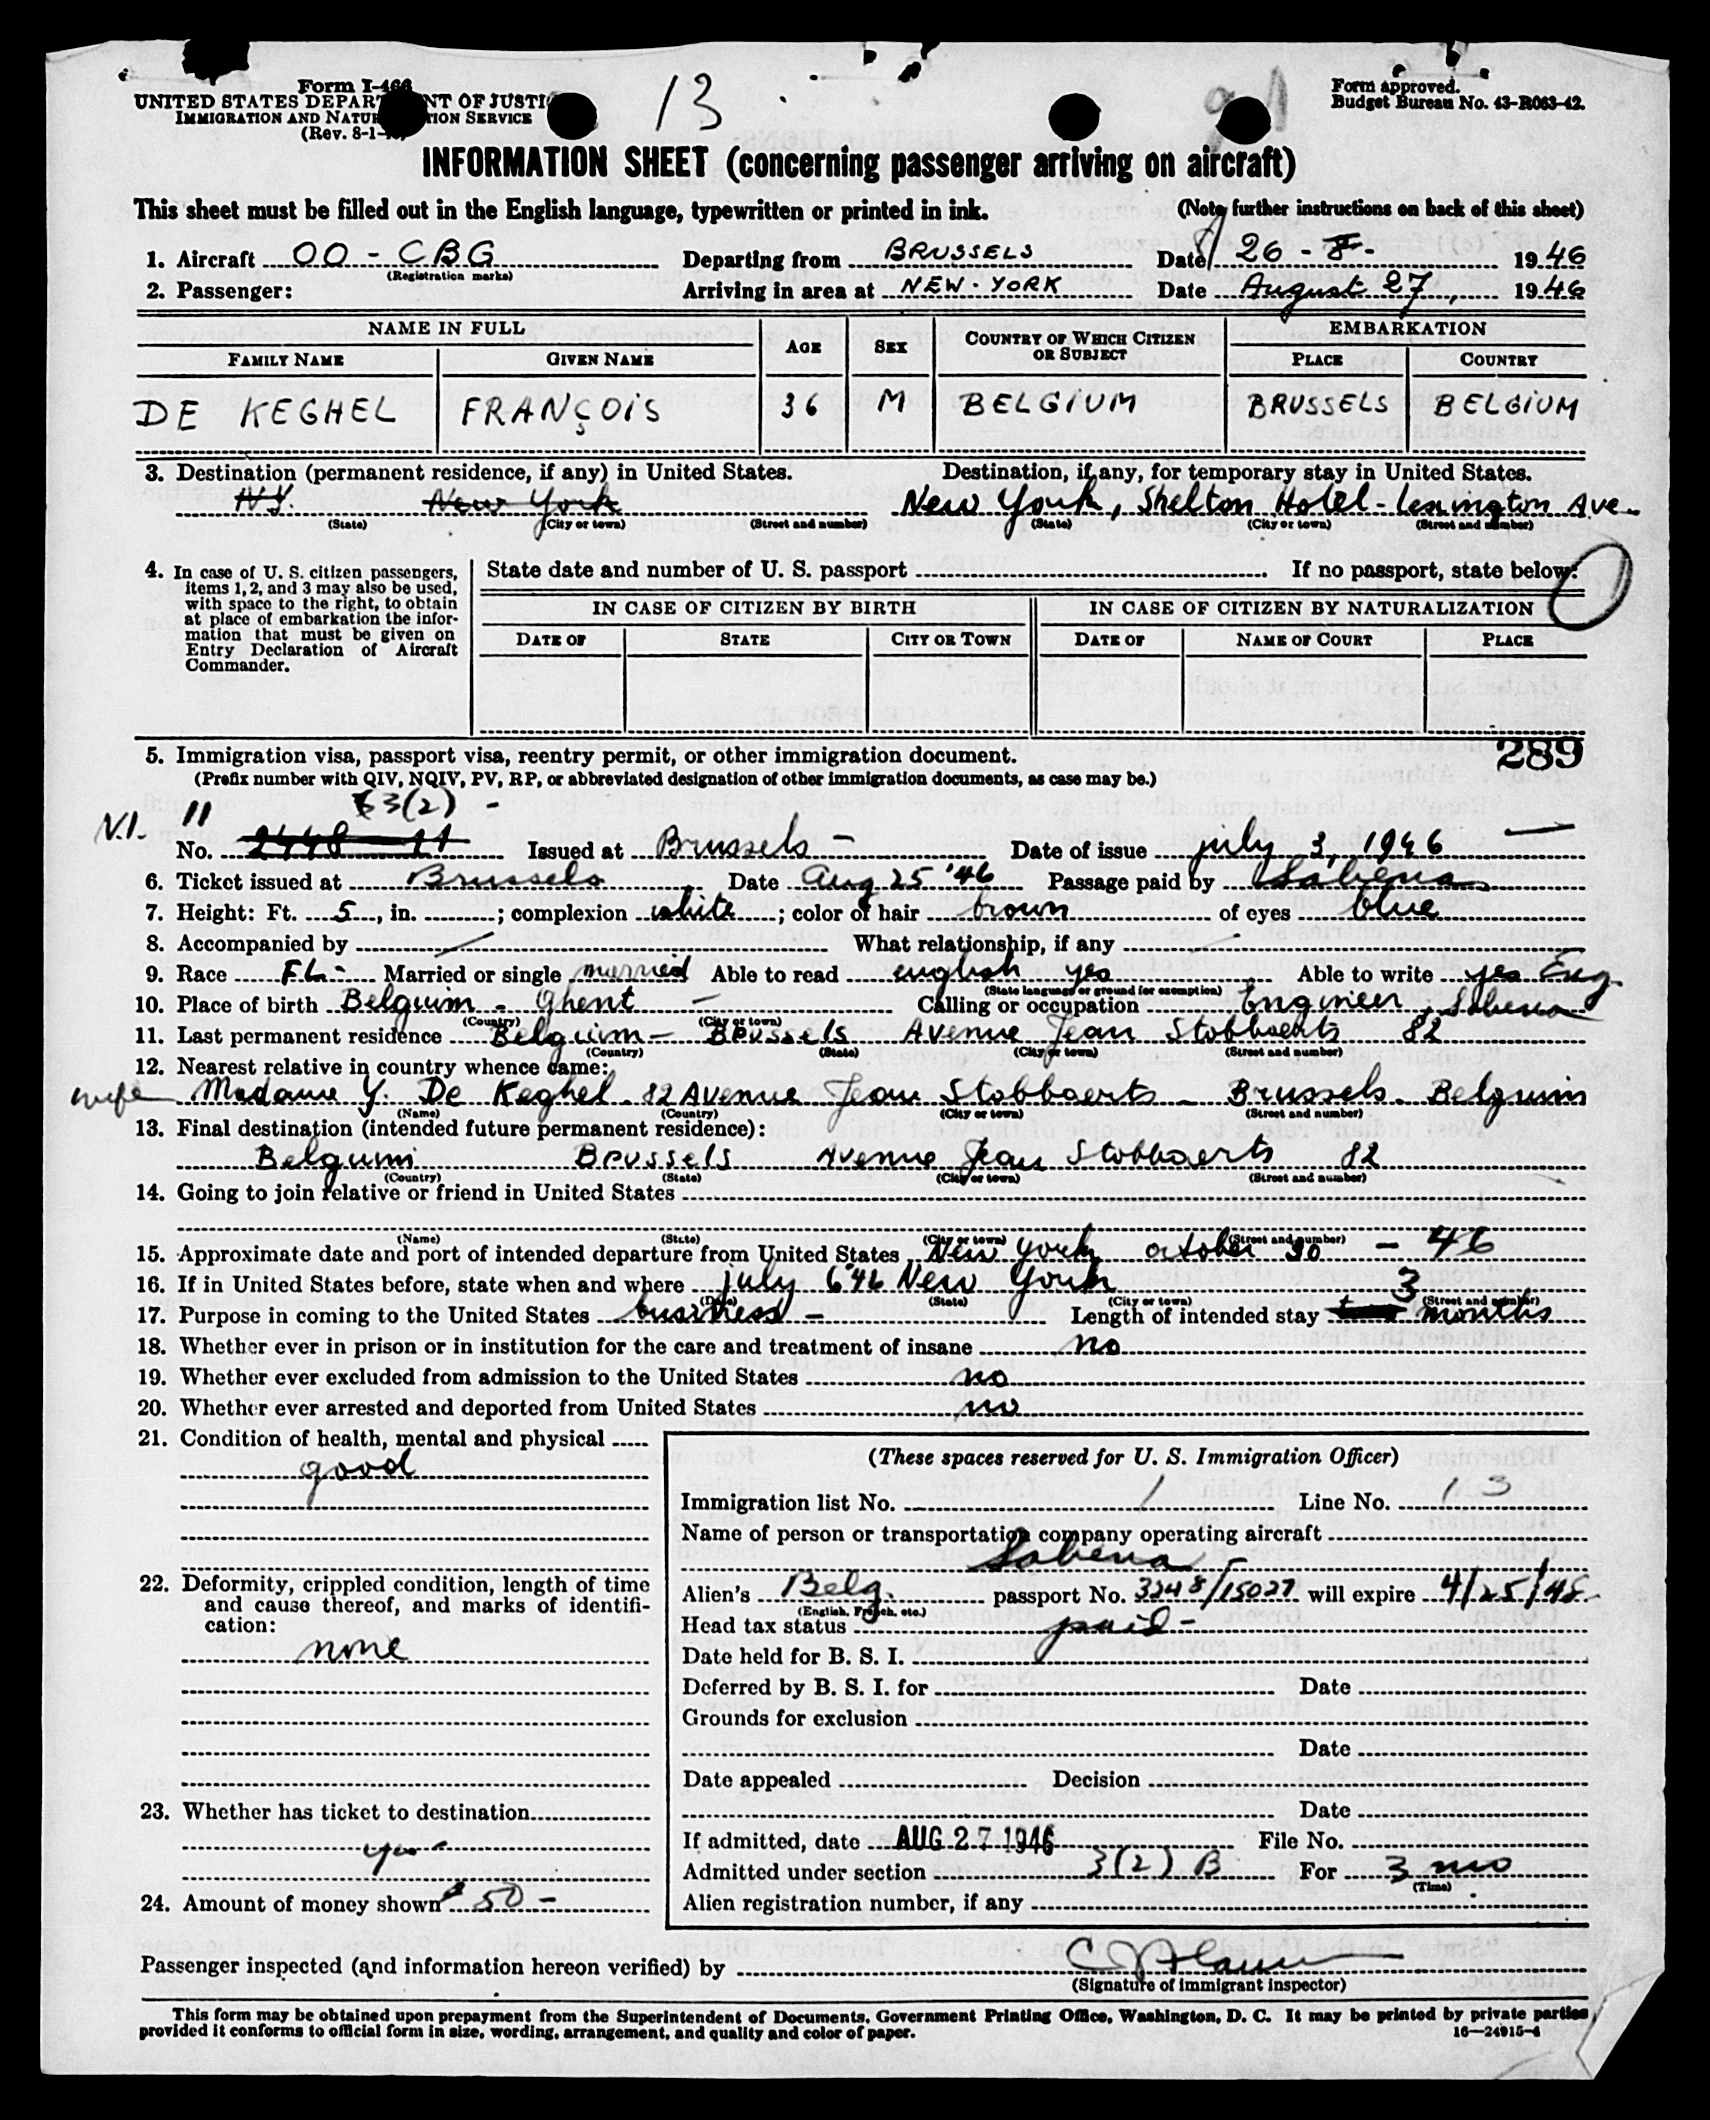 Form I-466
UNITED STATES DEPARTMENT OF JUSTICE
IMMIGRATION AND NATURALIZATION SERVICE
(Rev. 8-1-
13
Form approved.
Budget Bureau No. 43-R063-42.
INFORMATION SHEET (concerning passenger arriving on aircraft)
This sheet must be filled out in the English language, typewritten or printed in ink. (Note further instructions on back of this sheet)
1. Aircraft OO - CBG Departing from BRUSSELS Date 26 - 8 - 1946
(Registration marks)
2. Passenger: Arriving in area at NEW-YORK Date August 27, 1946
NAME IN FULL AGE SEX COUNTRY OF WHICH CITIZEN OR SUBJECT EMBARKATION
FAMILY NAME GIVEN NAME PLACE COUNTRY
DE KEGHEL FRANÇOIS 36 M BELGIUM BRUSSELS BELGIUM
3. Destination (permanent residence, if any) in United States. Destination, if any, for temporary stay in United States.
N.Y. New York New York, Shelton Hotel - Lexington Ave.
(State) (City or town) (Street and number) (State) (City or town) (Street and number)
4. In case of U. S. citizen passengers, items 1, 2, and 3 may also be used, with space to the right, to obtain at place of embarkation the information that must be given on Entry Declaration of Aircraft Commander.
State date and number of U. S. passport If no passport, state below:
IN CASE OF CITIZEN BY BIRTH IN CASE OF CITIZEN BY NATURALIZATION
DATE OF STATE CITY OR TOWN DATE OF NAME OF COURT PLACE
289
5. Immigration visa, passport visa, reentry permit, or other immigration document.
(Prefix number with QIV, NQIV, PV, RP, or abbreviated designation of other immigration documents, as case may be.)
V.I. 11 3(2) -
No. 2448 11 Issued at Brussels - Date of issue july 3, 1946
6. Ticket issued at Brussels Date Aug 25 '46 Passage paid by Sabena
7. Height: Ft. 5, in. ; complexion white ; color of hair brown of eyes blue
8. Accompanied by What relationship, if any
9. Race FL- Married or single married Able to read english yes Able to write yes Eng.
(State language or ground for exemption)
10. Place of birth Belguim - Ghent - Calling or occupation Engineer, Sabena
(Country) (City or town)
11. Last permanent residence Belguim - Brussels Avenue Jean Stobbaerts 82
(Country) (State) (City or town) (Street and number)
12. Nearest relative in country whence came:
wife Madame Y. De Keghel - 82 Avenue Jean Stobbaerts - Brussels - Belguim
(Name) (Country) (City or town) (Street and number)
13. Final destination (intended future permanent residence):
Belguim Brussels Avenue Jean Stobbaerts 82
(Country) (State) (City or town) (Street and number)
14. Going to join relative or friend in United States
(Name) (State) (City or town) (Street and number)
15. Approximate date and port of intended departure from United States New York october 30 - 46
16. If in United States before, state when and where july 6'46 New York
(Date) (State) (City or town) (Street and number)
17. Purpose in coming to the United States business - Length of intended stay 3 months
18. Whether ever in prison or in institution for the care and treatment of insane no
19. Whether ever excluded from admission to the United States no
20. Whether ever arrested and deported from United States no
21. Condition of health, mental and physical
good
22. Deformity, crippled condition, length of time and cause thereof, and marks of identification:
none
23. Whether has ticket to destination
yes
24. Amount of money shown $50 -
(These spaces reserved for U. S. Immigration Officer)
Immigration list No. 1 Line No. 13
Name of person or transportation company operating aircraft
Sabena
Alien's Belg. passport No. 3248/15027 will expire 4/25/48
(English, French, etc.)
Head tax status paid -
Date held for B. S. I.
Deferred by B. S. I. for Date
Grounds for exclusion
Date
Date appealed Decision
Date
If admitted, date AUG 27 1946 File No.
Admitted under section 3(2) B For 3 mo
(Time)
Alien registration number, if any
Passenger inspected (and information hereon verified) by
(Signature of immigrant inspector)
This form may be obtained upon prepayment from the Superintendent of Documents, Government Printing Office, Washington, D. C. It may be printed by private parties
provided it conforms to official form in size, wording, arrangement, and quality and color of paper. 16—24915-4